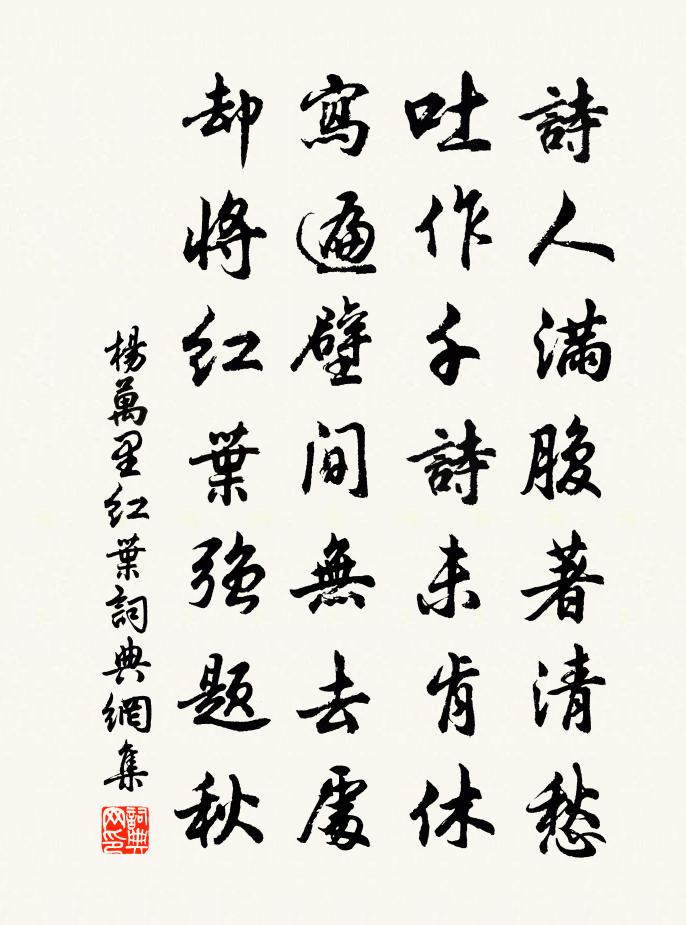 詩人滿腹著清愁
吐作千詩未肯休
寫遍壁間無去處
却將红葉强题秋
楊萬里红葉詞典網集
詞典网印